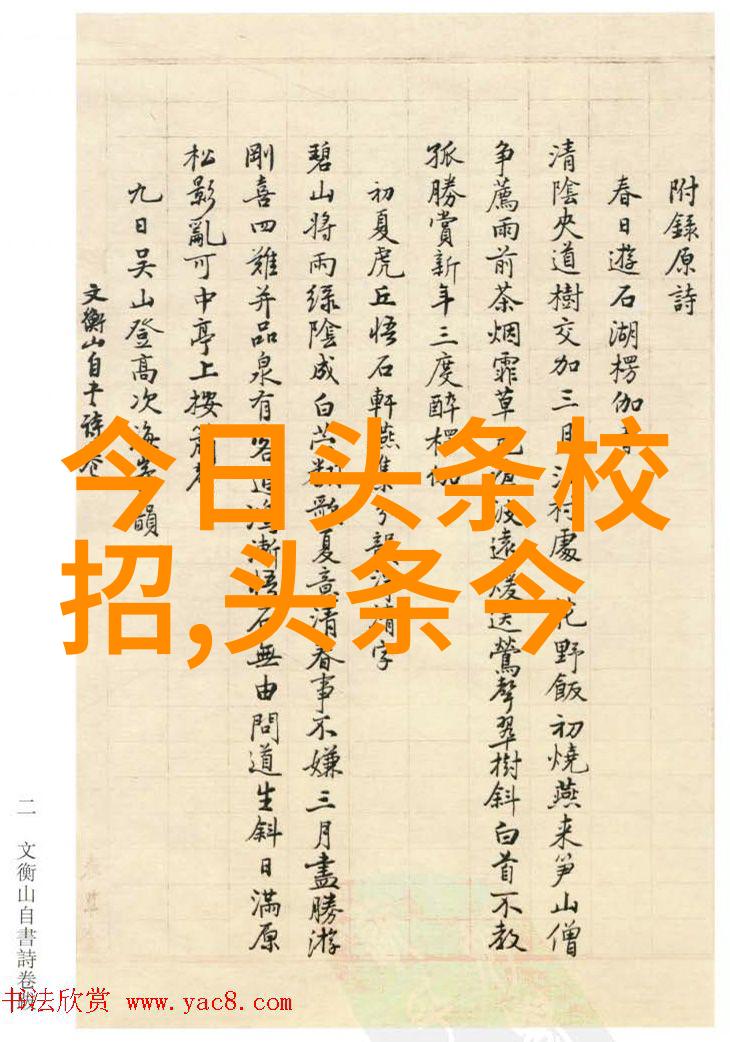 附錄原詩
春日遊石湖楞伽
清陰夾道樹交加三日村處花野飯初燒燕来笋山僧
争薦雨前茶烟霏草色波遠暖送鶯聲翠樹斜白首不教
孤勝賞新年三度醉楞伽
初夏虎丘悟石軒燕集分韻得情字
碧山將雨緑陰成白苎翻歌夏意清春事不嫌三月盡勝游
剛喜四難并品泉有客追鴻漸悟石無由問道生斜日滿原
松影亂可中亭上按簫聲
九日吳山登高次海韻
文衡山自书詩卷
今日头条校
招,头条今
二 文衡山自書詩卷
书法欣赏 www.yac8.com